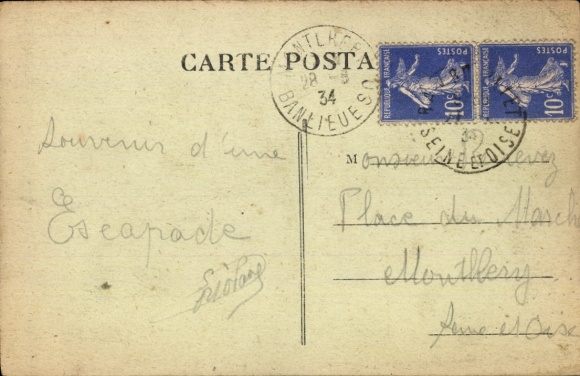 CARTE POSTA
MONTLHERY
28 - 3
34
BANLIEUES
REPUBLIQUE FRANÇAISE
POSTES
10c
REPUBLIQUE FRANÇAISE
POSTES
10c
SEINE ET OISE
Souvenir d'une
Escapade
Monsieur
Place du March
Montlhery
Seine et Oise